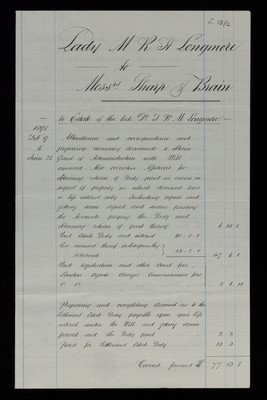 Lady M R A Longmore
to
Messrs Sharp & Brain
to Estate of the late W. Longmore
1898
Feb 9
to
June 28
Attendances and correspondence and
preparing necessary documents to obtain
Grant of Administration with Will
annexed
obtaining return of Duty paid in excess in
respect of property in which deceased had
a life interest only - including copies and
getting same signed and sworn passing
the Accounts paying the Duty and
obtaining return of part thereof
Paid Estate Duty and interest
Less amount thereof subsequently
returned
Paid registration and other Court fees
London Agents charges Commissioners fees
Preparing and completing Account as to the
Settlement Estate Duty payable upon your life
interest under the Will and getting same
passed and the Duty paid
Paid for Settlement Estate Duty
Carried forward £ 77